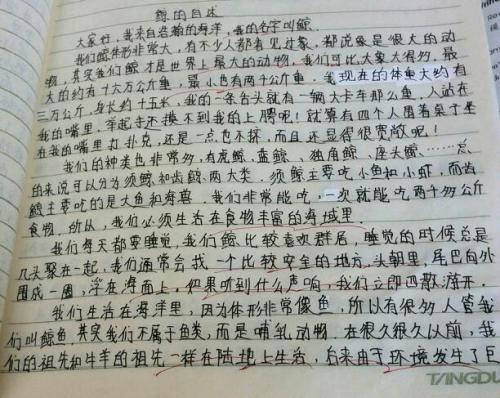 鲸的自述
大家好，我来自浩瀚的海洋，我的名字叫鲸、
我们鲸体形非常大，有不少人都看见过象，都说象是很大的动
物，其实我们鲸才是世界上最大的动物，我们可比大象大得多，最
大的约有十六万公斤重，最小也有两千公斤重，我现在的体重大约有
三万公斤，身长约十五米，我的一条舌头就有一辆大卡车那么重，人站在
我的嘴里，举起手还摸不到我的上腭呢！就算有四个人围着桌子坐
在我的嘴里打扑克，还是一点也不挤，而且还显得很宽敞呢！
我们的种类也非常多，有虎鲸、蓝鲸、独角鲸、座头鲸、……总
的来说可以分为须鲸和齿鲸两大类。须鲸主要吃小鱼和小虾，而齿
鲸主要吃的是大鱼和海兽，我们非常能吃，一次就能吃两千多公斤
食物，所以，我们必须生活在食物丰富的海域里。
我们每天都要睡觉，我们鲸比较喜欢群居，睡觉的时候总是
几头聚在一起，我们通常会找一个比较安全的地方，头朝里，尾巴向外
围成一圈，浮在海面上，如果听到什么声响，我们立即四散游开。
我们生活在海洋里，因为体形非常像鱼，所以有很多人管我
们叫鲸鱼，其实我们不属于鱼类，而是哺乳动物。在很久很久以前，我
们的祖先和牛羊的祖先一样在陆地上生活，后来由于环境发生了巨
TANGDU